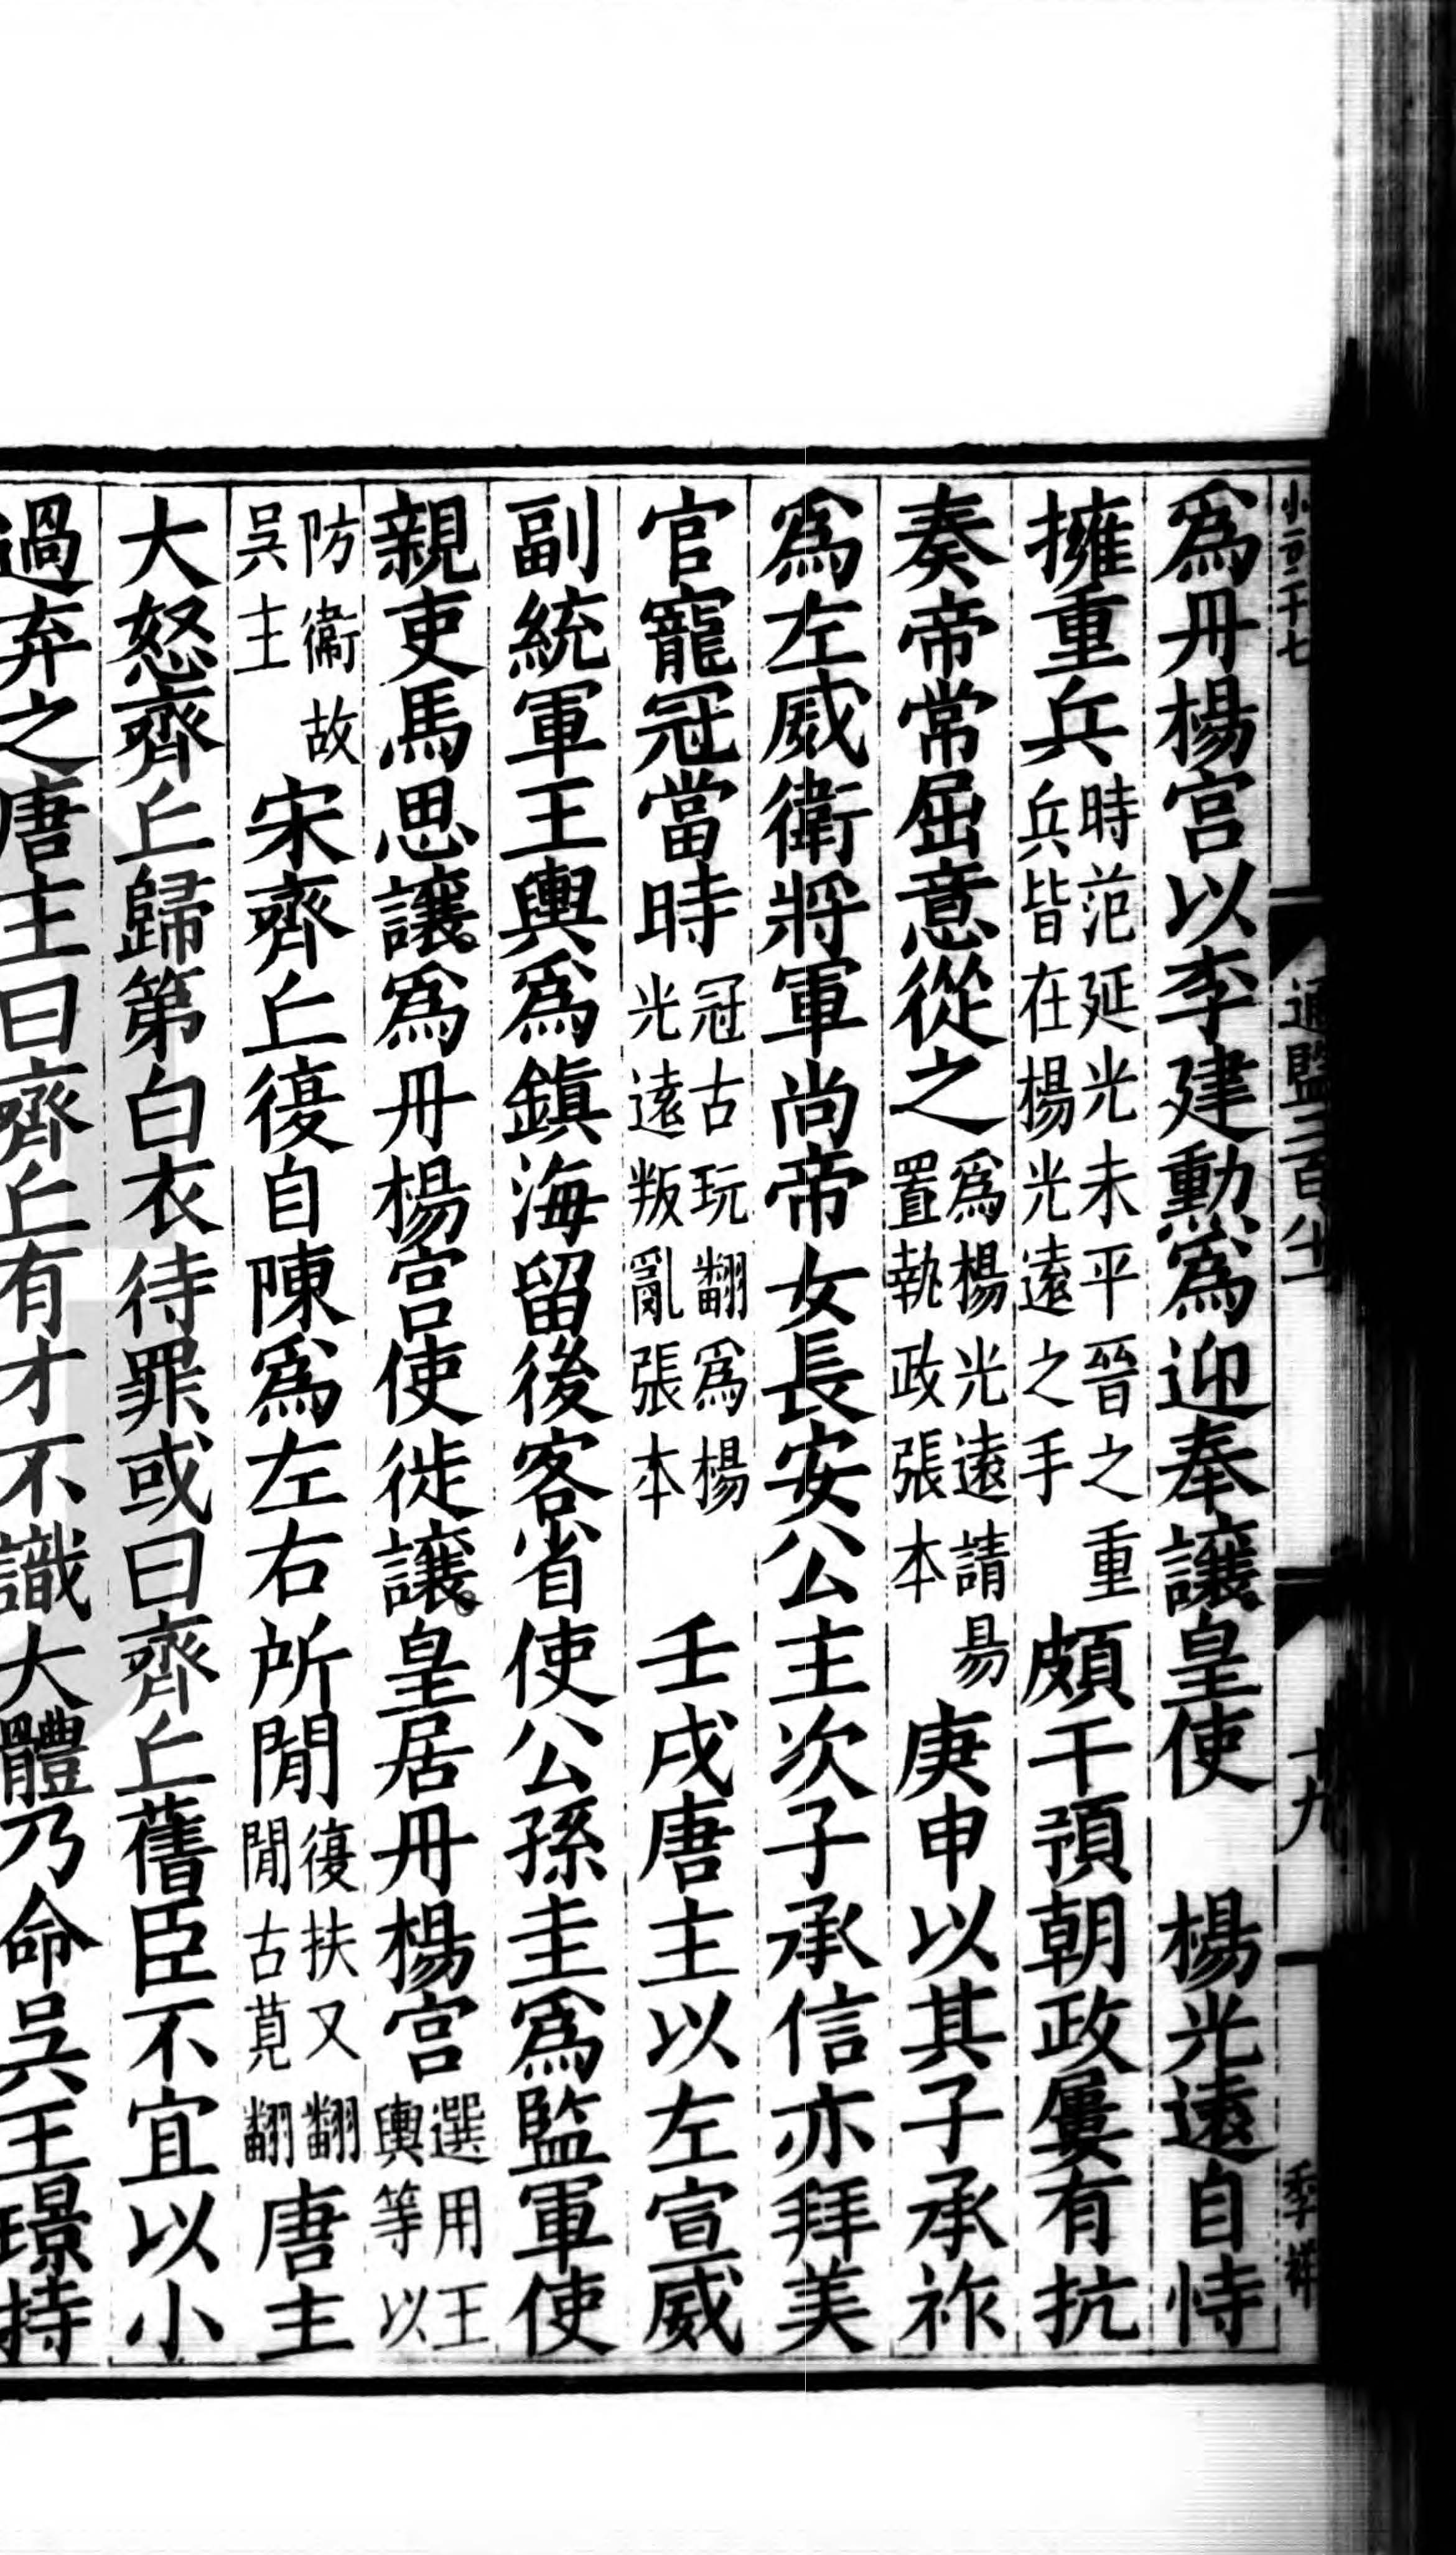 爲丹楊宮以李建勳爲迎奉讓皇使　楊光遠自恃
擁重兵時范延光未平晉之重兵皆在楊光遠之手頗干預朝政屢有抗
奏帝常屈意從之爲楊光遠請易置執政張本庚申以其子承祚
爲左威衛將軍尚帝女長安公主次子承信亦拜美
官寵冠當時冠古玩翻爲楊光遠叛亂張本　壬戌唐主以左宣威
副統軍王輿爲鎮海留後客省使公孫圭爲監軍使
親吏馬思讓爲丹楊宮使徙讓皇居丹楊宮選用王輿等以
防衞故吳主宋齊丘復自陳爲左右所閒復扶又翻閒古莧翻唐主
大怒齊丘歸第白衣待罪或曰齊丘舊臣不宜以小
過弃之唐主曰齊丘有才不識大體乃命吳王璟持
通鑑二百八十一
十九